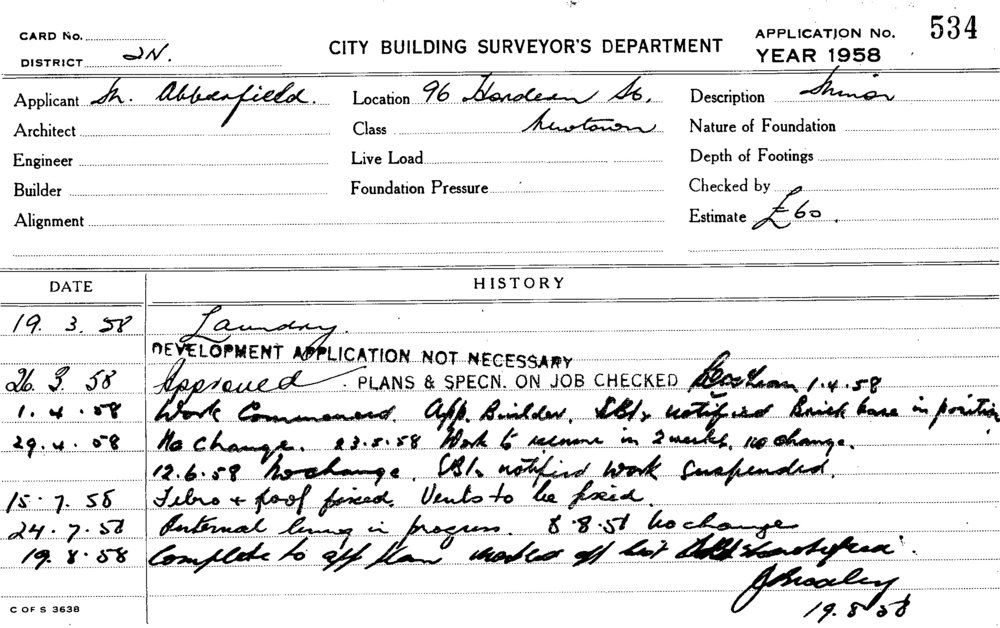 CARD No.
DISTRICT 2N.
CITY BUILDING SURVEYOR'S DEPARTMENT
APPLICATION No. 534
YEAR 1958
Applicant M. Abberfield.
Location 96 St.
Description Minor
Architect
Class Newtown
Nature of Foundation
Engineer
Live Load
Depth of Footings
Builder
Foundation Pressure
Checked by
Alignment
Estimate £60.
DATE HISTORY
19. 3. 58 Laundry.
DEVELOPMENT APPLICATION NOT NECESSARY
26. 3. 58 Approved. PLANS & SPECN. ON JOB CHECKED 1.4.58
1. 4. 58 Work Commenced. App. Builder. notified Brick base in position
29. 4. 58 No Change. 23.5.58 Work to resume in 2 weeks, no change.
12.6.58 No change. notified work suspended.
15. 7. 58 Fibro & roof fixed. Vents to be fixed.
24. 7. 58 Internal lining in progress. 8.8.58 No change
19. 8. 58 Complete to app plan
19. 8 58
C OF S 3638